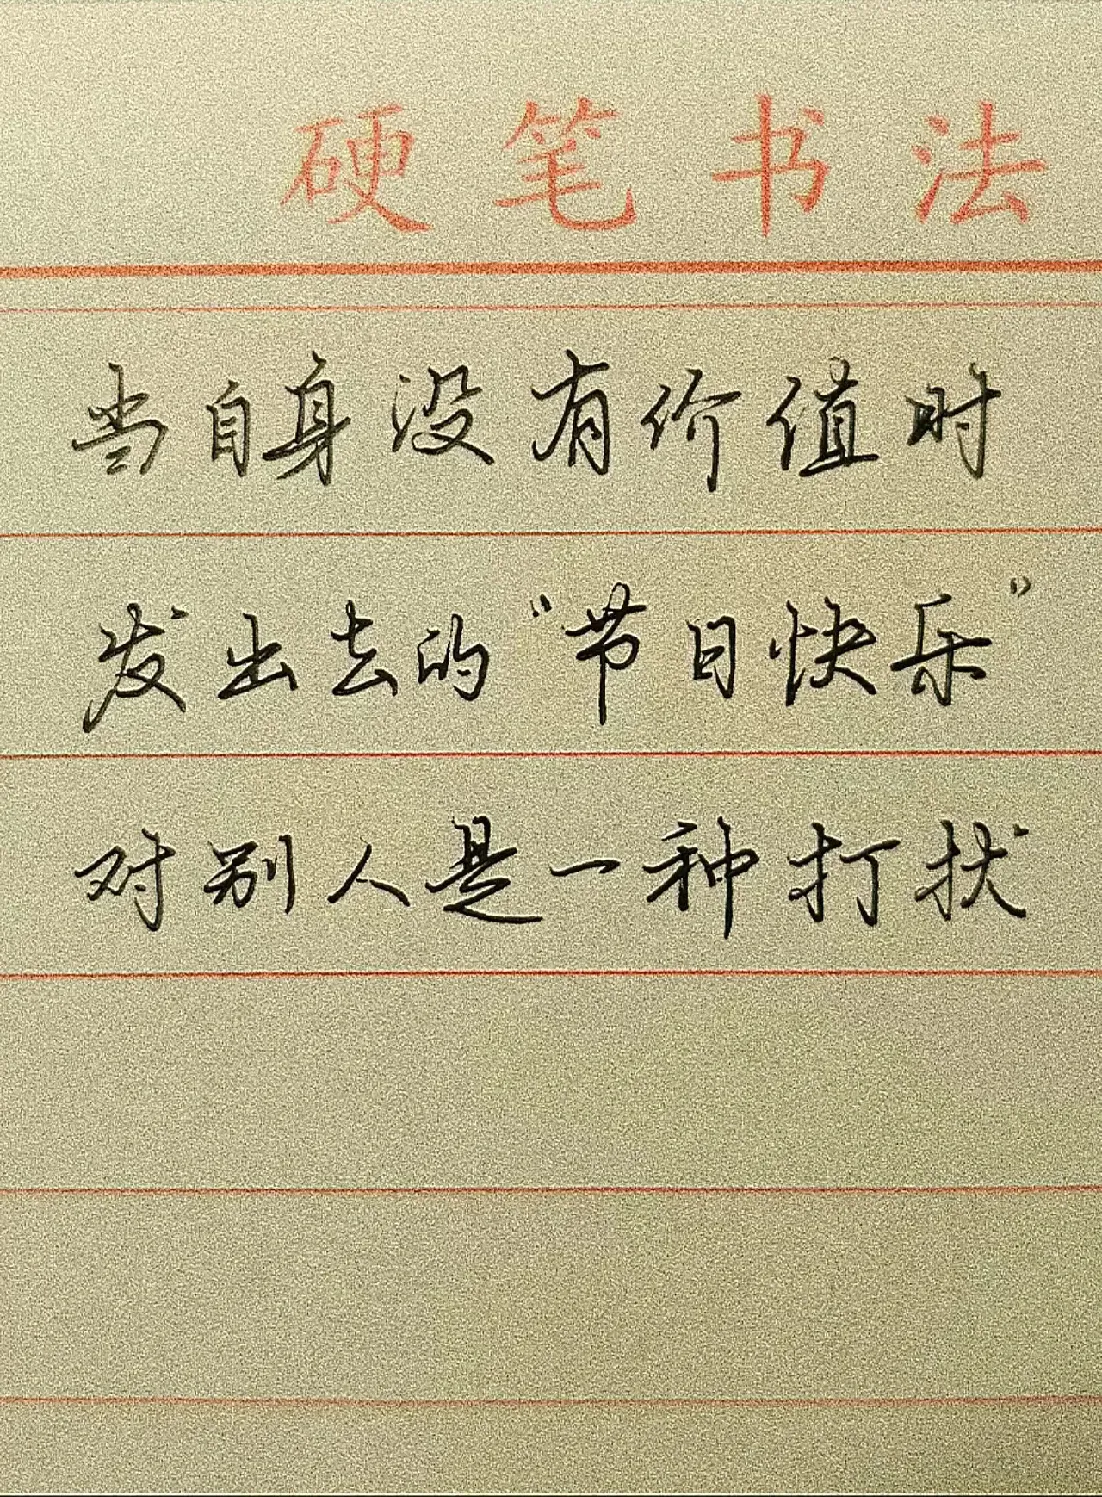 硬笔书法
当自身没有价值时
发出去的“节日快乐”
对别人是一种打扰